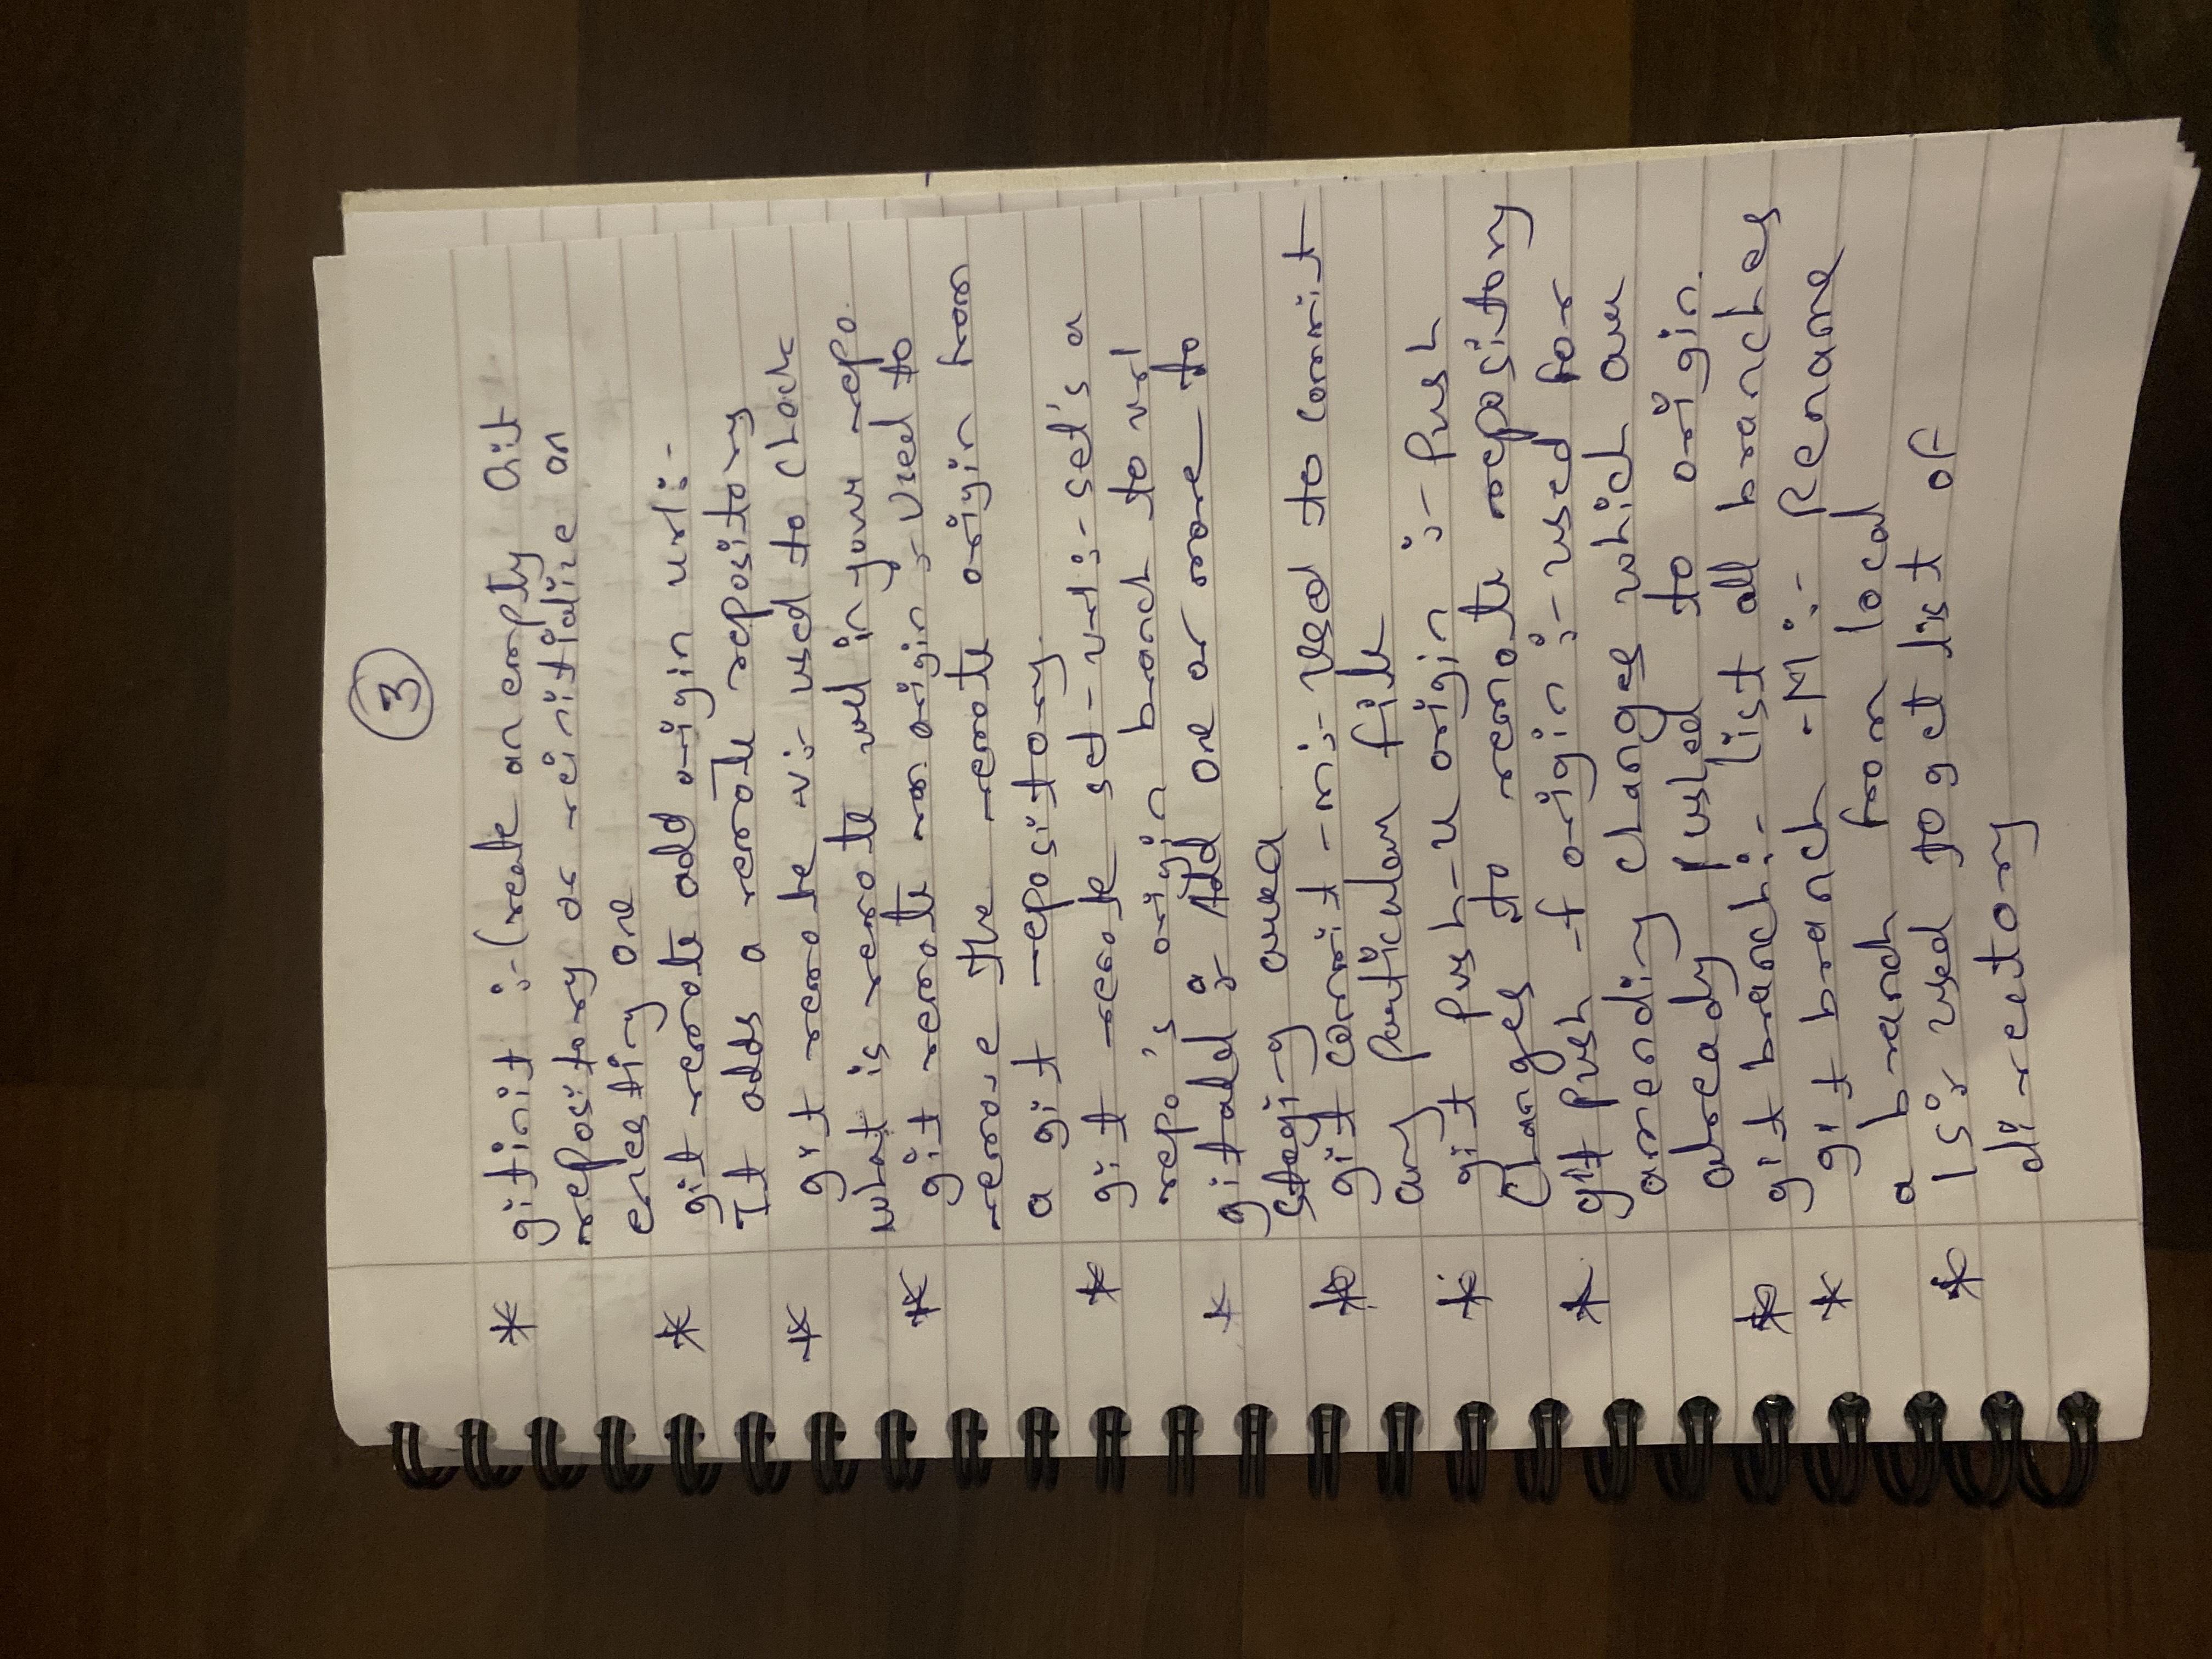 3
* gitinit :- Create an empty Git
repository or reinitialize an
enesting one
* git remote add origin url :-
It adds a remote repository
* git remote -v :- used to check
what is remote url in your repo.
* git remote rm origin :- Used to
remove the remote origin from
a git repository.
* git remote set-url :- set's a
repo's origin branch to url
* git add :- Add one or more to
staging area
* git commit -m :- Used to commit
any particular file
* git push -u origin :- Push
Changes to remote repository
* git push -f origin :- used for
amending changes which are
already pushed to origin.
* git branch :- list all branches
* git branch -M :- Rename
a branch from local
* ls :- used to get list of
directory